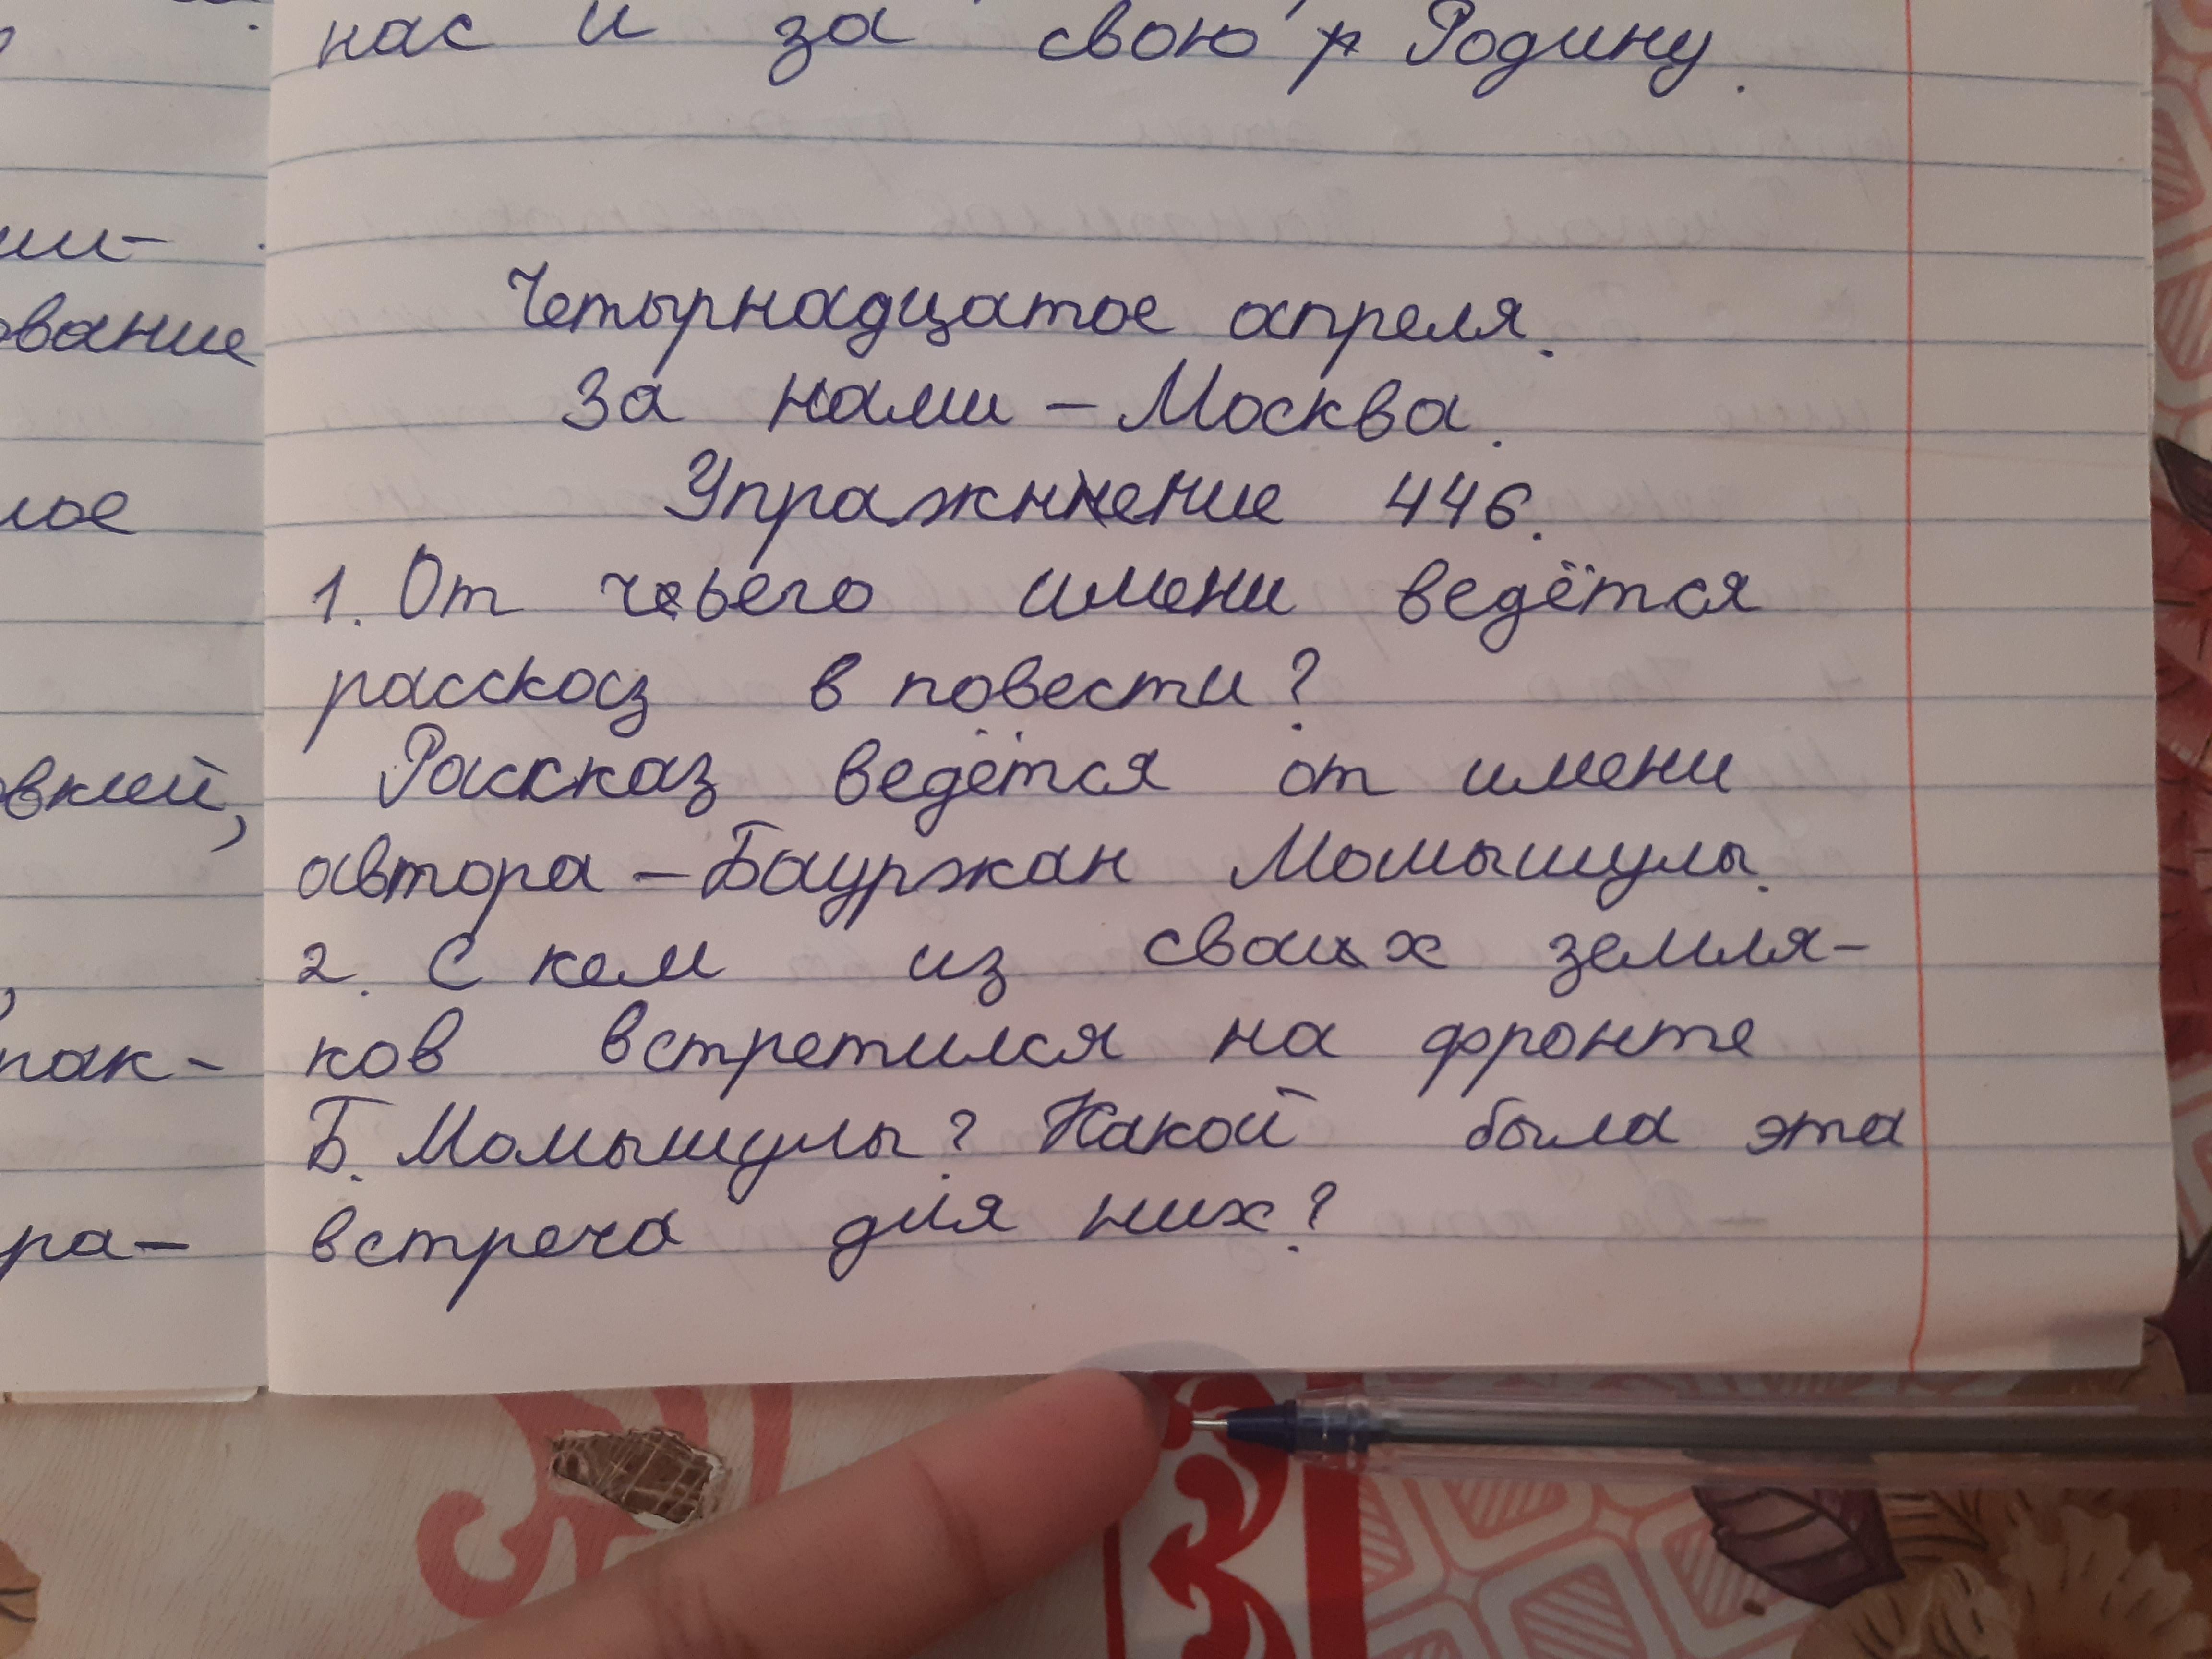 нас и за свою Родину.
ши-
ование
Четырнадцатое апреля.
За нами - Москва.
Упражнение 446.
лое
1. От чьего имени ведётся
рассказ в повести?
Рассказ ведётся от имени
вкий,
автора - Бауржан Момышулы.
2. С кем из своих земля-
ков встретился на фронте
пак-
Б. Момышулы? Какой была эта
встреча для них?
ра-